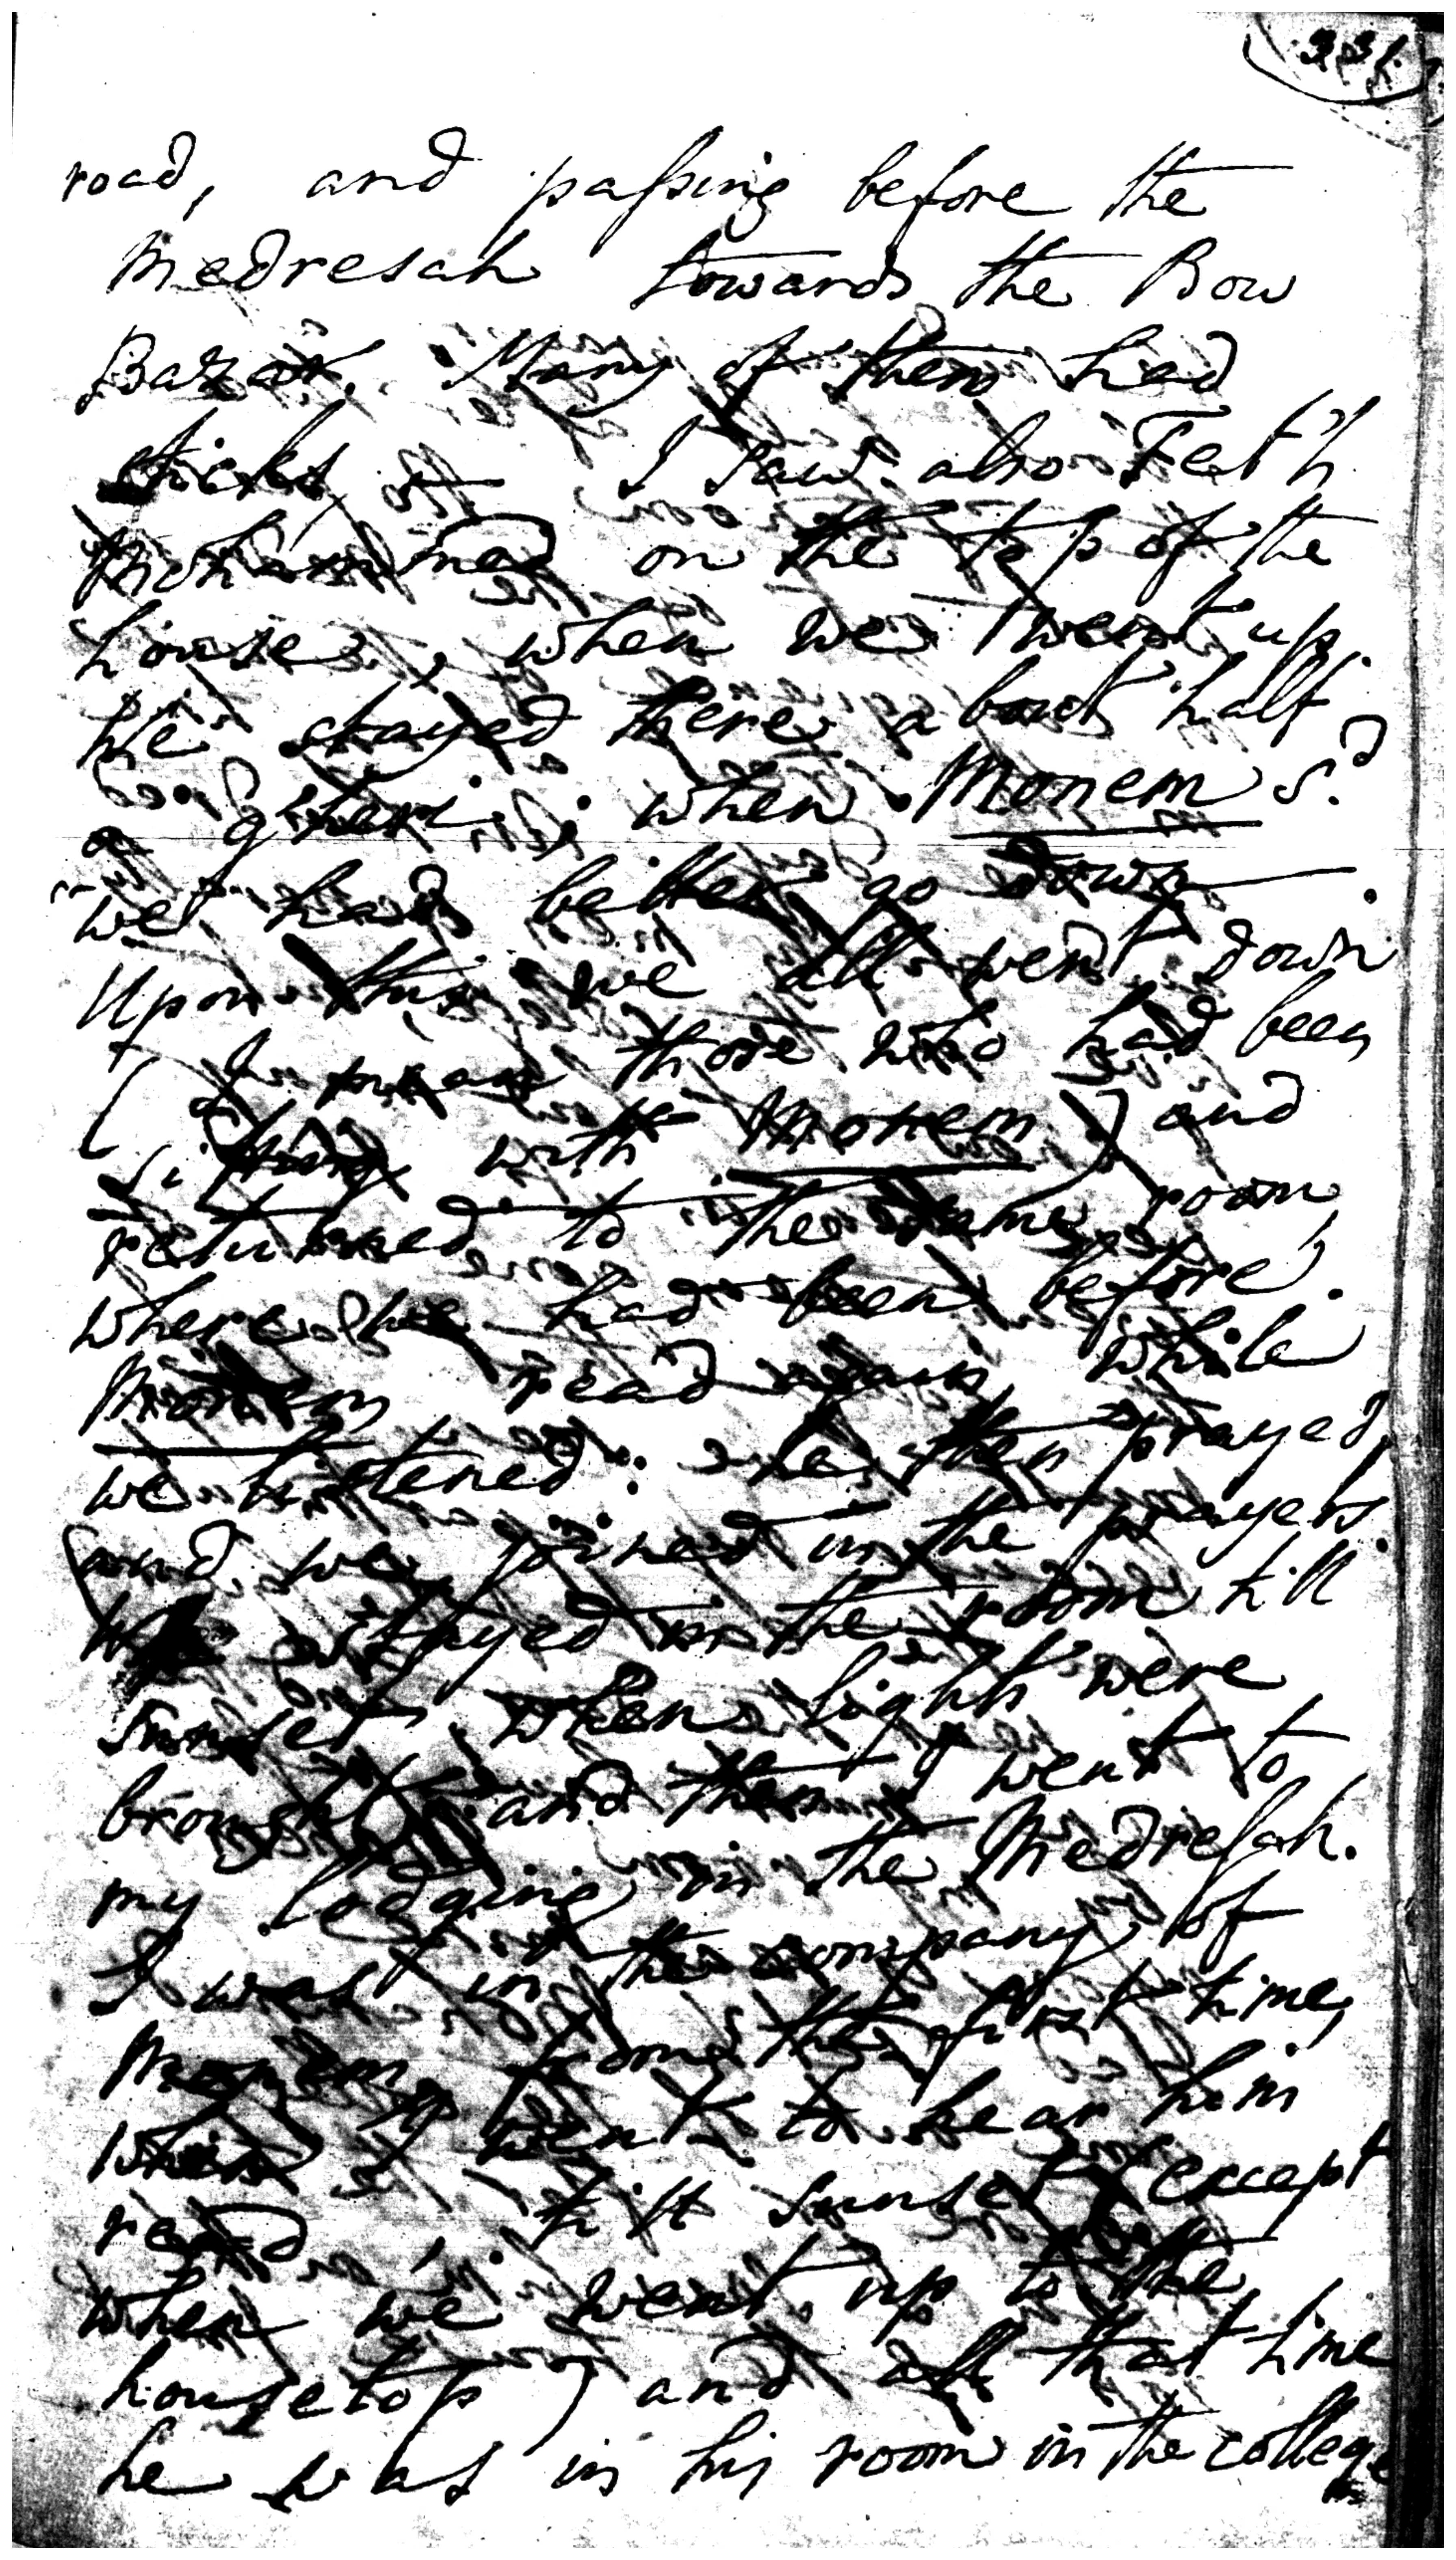 331.
road, and passing before the
Medresah towards the Bow
Bazar. Many of them had
sticks — I saw also Fet'h
Mohammed on the top of the
house, when we went up.
we stayed there about half
a gheri; when Monem s.d
"we had better go down —.
Upon this we all went down
(I mean those who had been
sitting with Monem) and
returned to the same room,
where we had been before.
Monem read again, while
we listened: he then prayed,
and we joined in the prayers.
We stayed in the room till
sunset, when lights were
brought and then I went to
my lodging in the Medressah.
I was in the company of
Monem, from the first time,
when I went to hear him
read, till sunset (except
when we went up to the
housetop) and all that time
he was in his room in the college